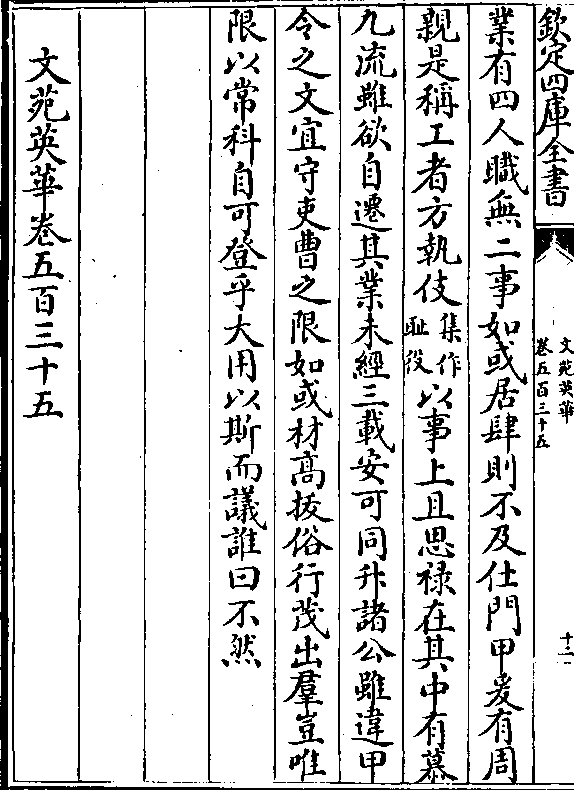 欽定四庫全書
文苑英華
卷五百三十五
十二
業有四人職無二事如或居肆則不及仕門甲爰有周
親是稱工者方執伎集作恥役以事上且思祿在其中有慕
九流雖欲自遷其業未經三載安可同升諸公雖違甲
令之文宜守吏曹之限如或材高拔俗行茂出羣豈唯
限以常科自可登乎大用以斯而議誰曰不然
文苑英華卷五百三十五